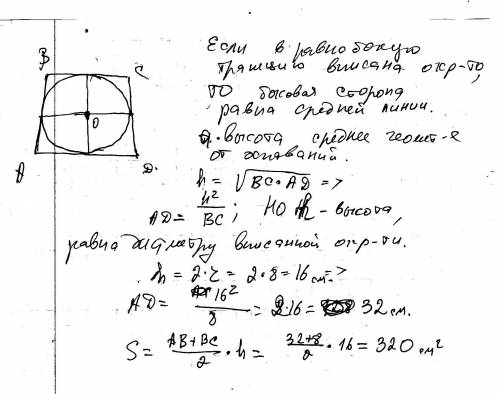 B
C
O
A
D.
Если в равнобокую
трапецию вписана окр-ть,
то боковая сторона
равна средней линии.
а высота среднее геомет-е
от оснований.
h = √BC·AD =>
AD = h²/BC; но h - высота,
равна диаметру вписанной окр-ти.
h = 2·r = 2·8 = 16 см =>
AD = 16²/8 = 2·16 = 32 см.
S = AB+BC/2 · h = 32+8/2 · 16 = 320 см²